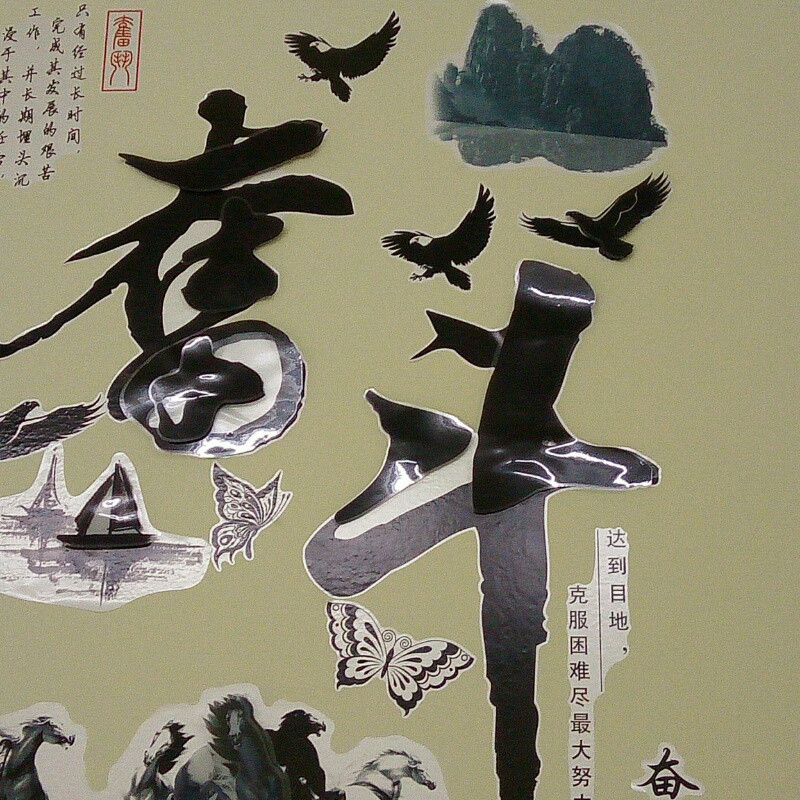 只有经过长时间，
完成其发展的艰苦
工作，并长期埋头沉
浸于其中的任
奮鬥
奋斗
达到目地，
克服困难尽最大努力
奋